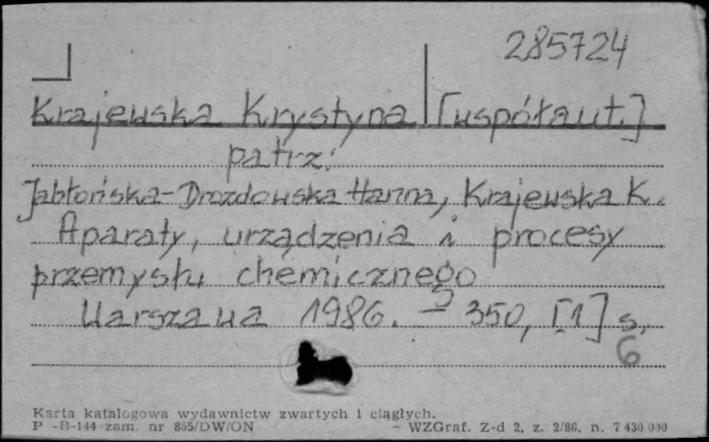 285724
Krajewska Krystyna [współaut.]
patrz:
Jabłońska-Drozdowska Hanna, Krajewska K.
Aparaty, urządzenia i procesy
przemysłu chemicznego
Warszawa 1986. - 350, [1] s.
6
Karta katalogowa wydawnictw zwartych i ciągłych.
P -B-144 zam. nr 865/DW/ON - WZGraf. Z-d 2, z. 2/86, n. 7 430 000